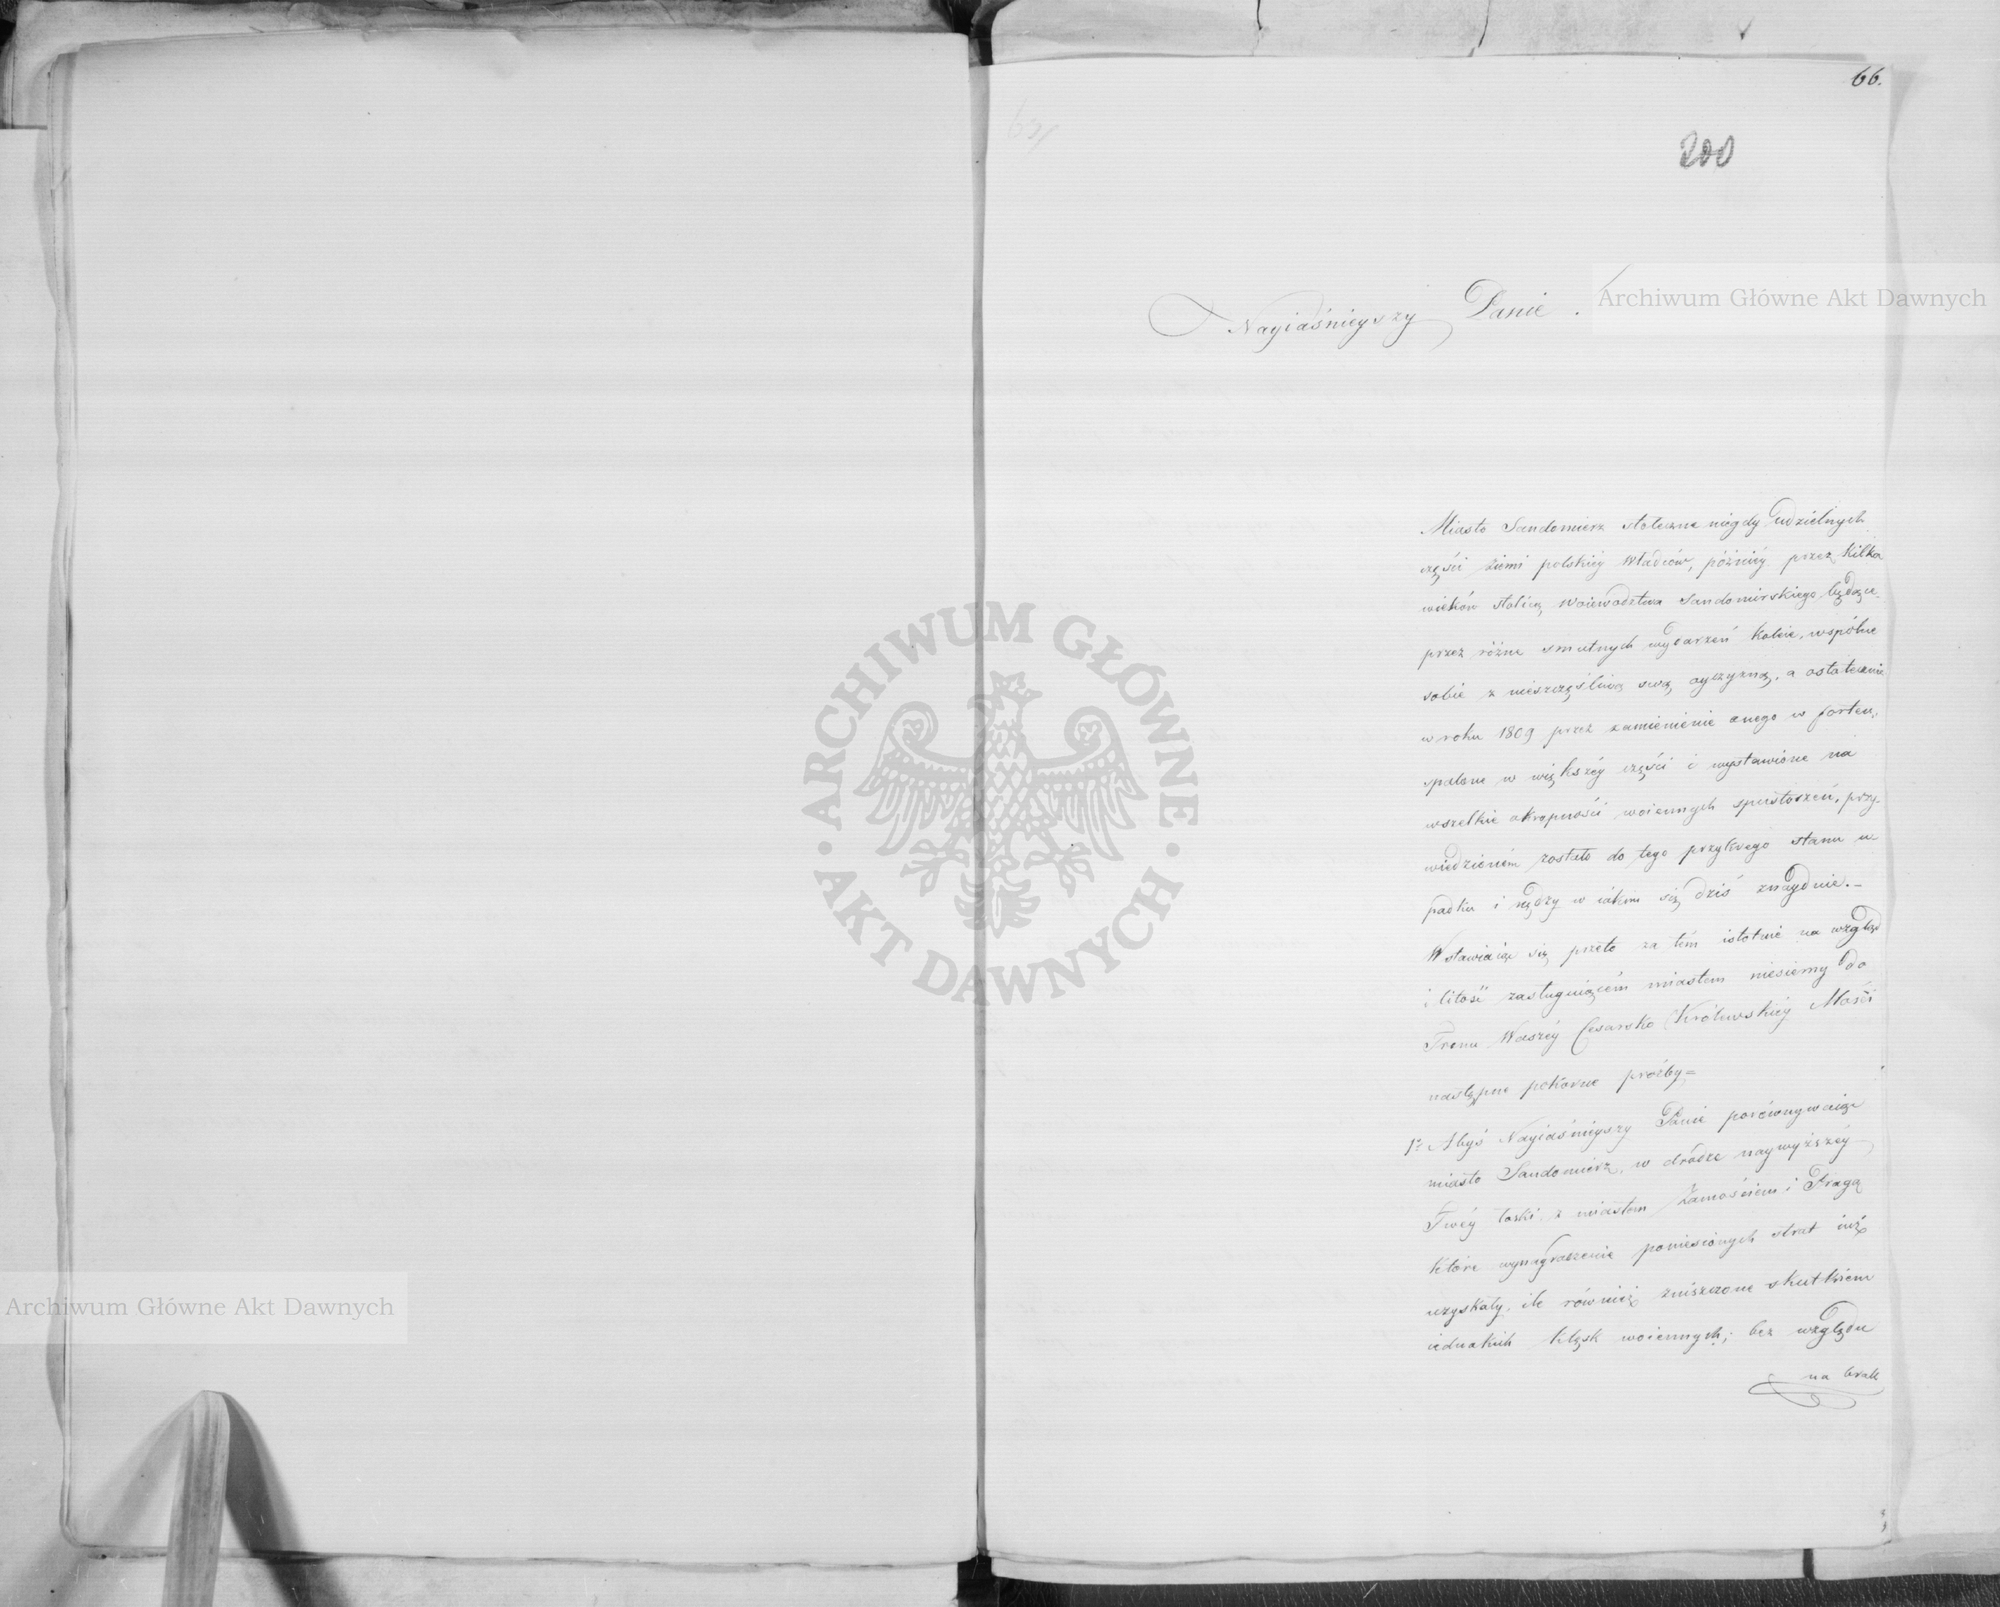 66.
200
Nayiaśnieyszy Panie.
Miasto Sandomierz stołeczne niegdy udzielnych
części ziemi polskiéy Władców, późniéy przez kilka
wieków stolicą Woiewodztwa Sandomirskiego będące
przez różne smutnych wydarzeń koleie, wspólne
sobie z nieszczęśliwą swą oyczyzną, a ostatecznie
w roku 1809 przez zamienienie onego w fortecę,
spalone w większéy części i wystawione na
wszelkie okropności woiennych spustoszeń, przy-
wiedzioném zostało do tego przykrego stanu u-
padku i nędzy w iakim się dziś znayduie.-
Wstawiaiąc się przeto za tém istotnie na wzgląd
i litość zasługuiącém miastem niesiemy do
Tronu Waszéy Cesarsko Królewskiéy Mości
następne pokorne proźby=
1º Abyś Nayiaśnieyszy Panie porównywaiąc
miasto Sandomierz, w drodze naywyższéy
Twéy łaski z miastem Zamościem i Pragą
które wynagrodzenie poniesionych strat iuż
uzyskały, ile również zniszczone skutkiem
iednakich klęsk woiennych; bez względu
na brak
ARCHIWUM GŁÓWNE
AKT DAWNYCH
Archiwum Główne Akt Dawnych
Archiwum Główne Akt Dawnych